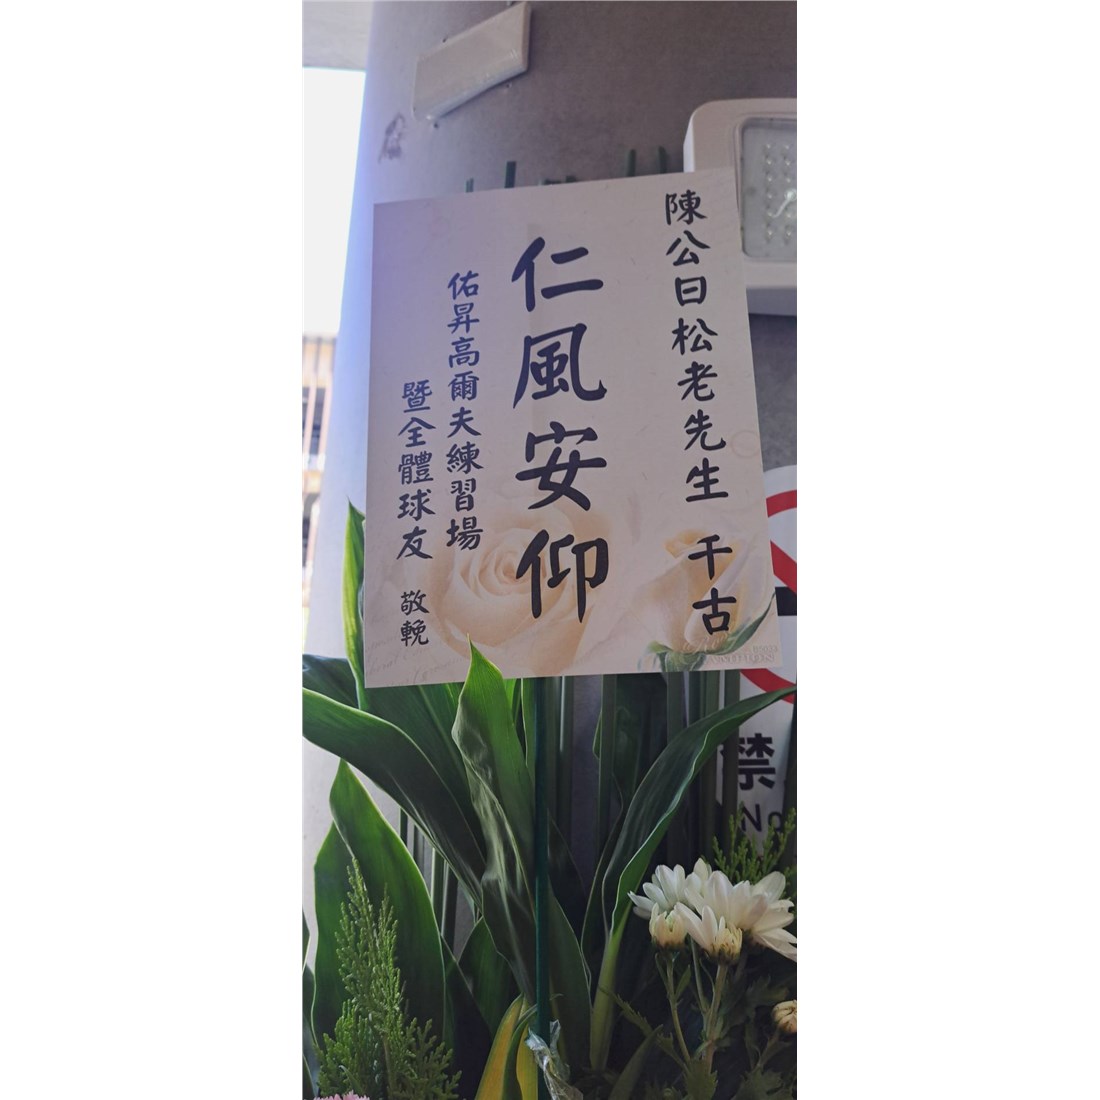 陳公日松老先生 千古
仁風安仰
佑昇高爾夫練習場
暨全體球友 敬輓
禁